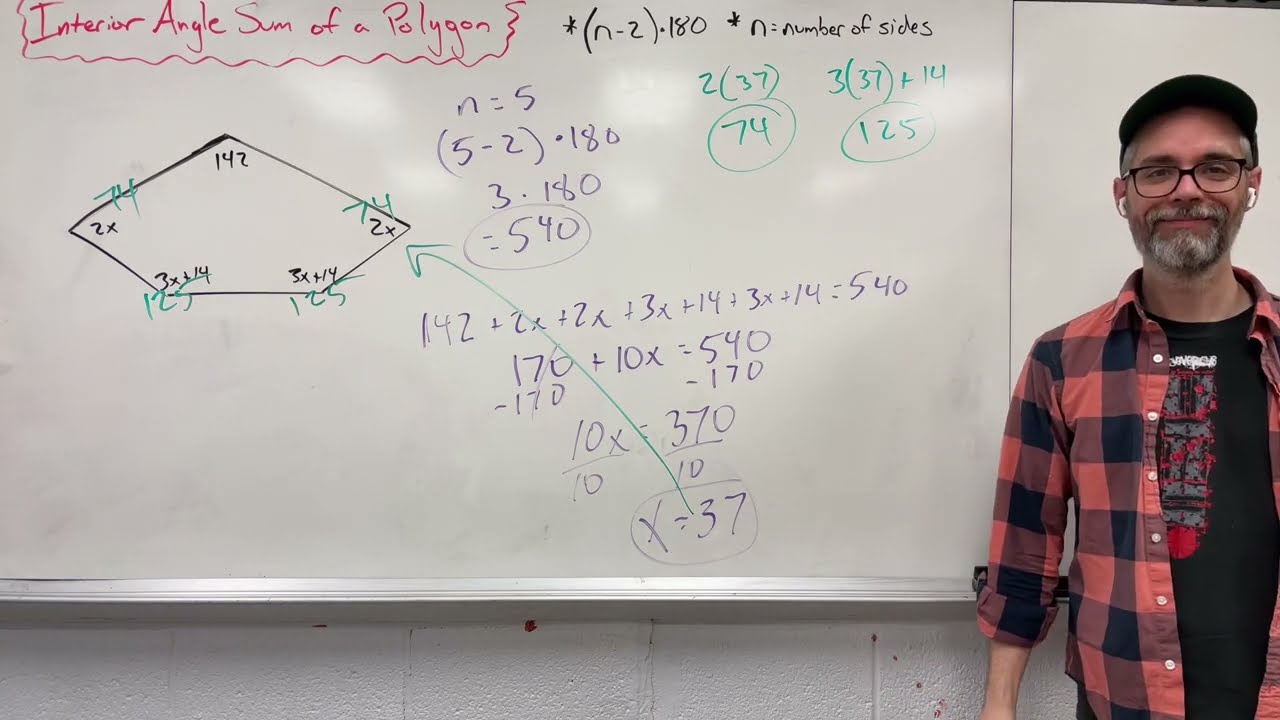 Interior Angle Sum of a Polygon
*(n-2)·180 * n=number of sides
142
74
74
2x
2x
3x+14
3x+14
125
125
n = 5
(5-2)·180
3·180
=540
2(37)
74
3(37)+14
125
142 + 2x + 2x + 3x + 14 + 3x + 14 = 540
170 + 10x = 540
-170 -170
10x = 370
10 10
x = 37